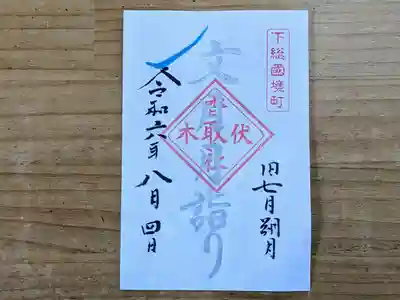 下総國境町
旧七月朔月
文月詣り
伏木
香取社
令和六年八月四日